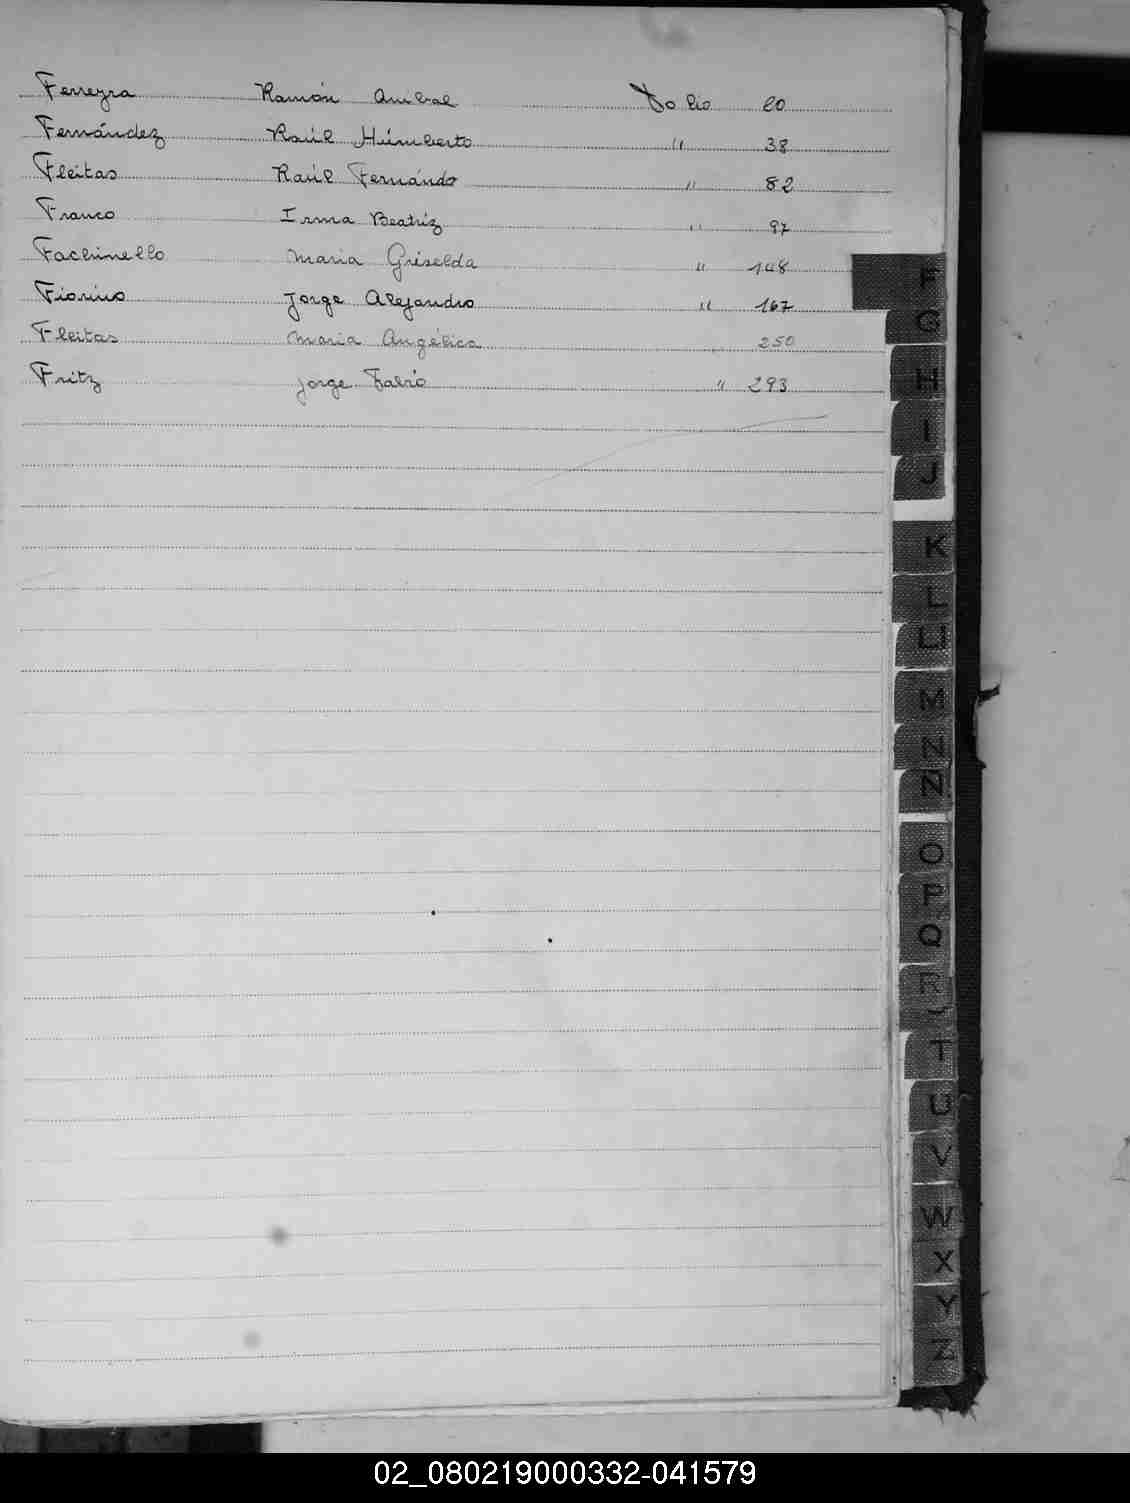 Ferreyra Ramón Anibal Folio 20
Fernández Raúl Húmberto " 38
Fleitas Raúl Fernándo " 82
Franco Irma Beatriz " 97
Fachinello Maria Griselda " 148
Fiorino Jorge Alejandro " 167
Fleitas Maria Angélica " 250
Fritz Jorge Fabio " 293
F
G
H
I
J
K
L
LL
M
N
Ñ
O
P
Q
R
T
U
V
W
X
Y
Z
02_080219000332-041579